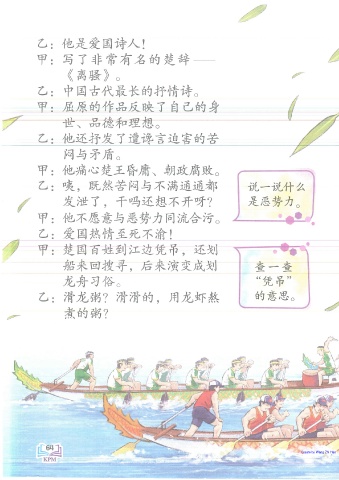 乙：他是爱国诗人！
甲：写了非常有名的楚辞——
《离骚》。
乙：中国古代最长的抒情诗。
甲：屈原的作品反映了自己的身
世、品德和理想。
乙：他还抒发了遭谗言迫害的苦
闷与矛盾。
甲：他痛心楚王昏庸、朝政腐败。
乙：咦，既然苦闷与不满通通都
发泄了，干吗还想不开呀？
甲：他不愿意与恶势力同流合污。
乙：爱国热情至死不渝！
甲：楚国百姓到江边凭吊，还划
船来回搜寻，后来演变成划
龙舟习俗。
乙：滑龙粥？滑滑的，用龙虾熬
煮的粥？
说一说什么
是恶势力。
查一查
“凭吊”
的意思。
64
KPM